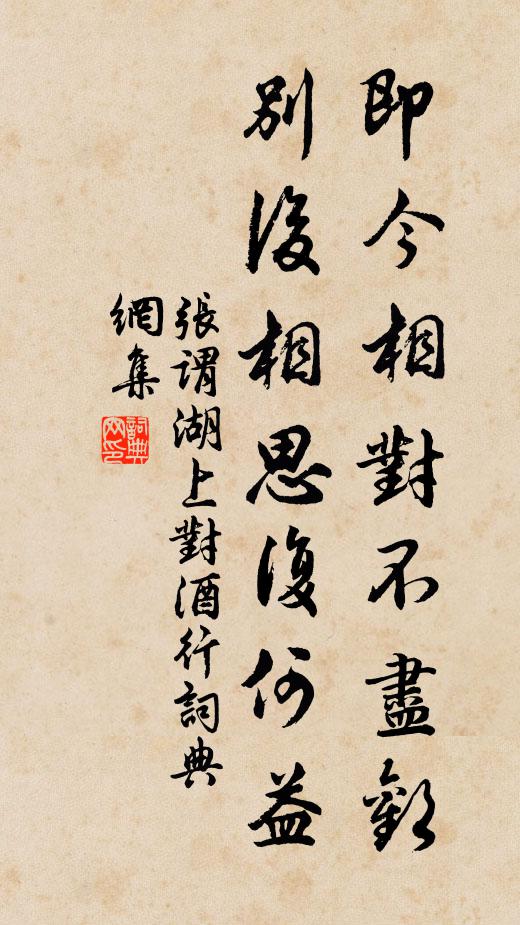 即今相對不盡歡
別後相思復何益
張謂湖上對酒行詞典
網集
詞典網印